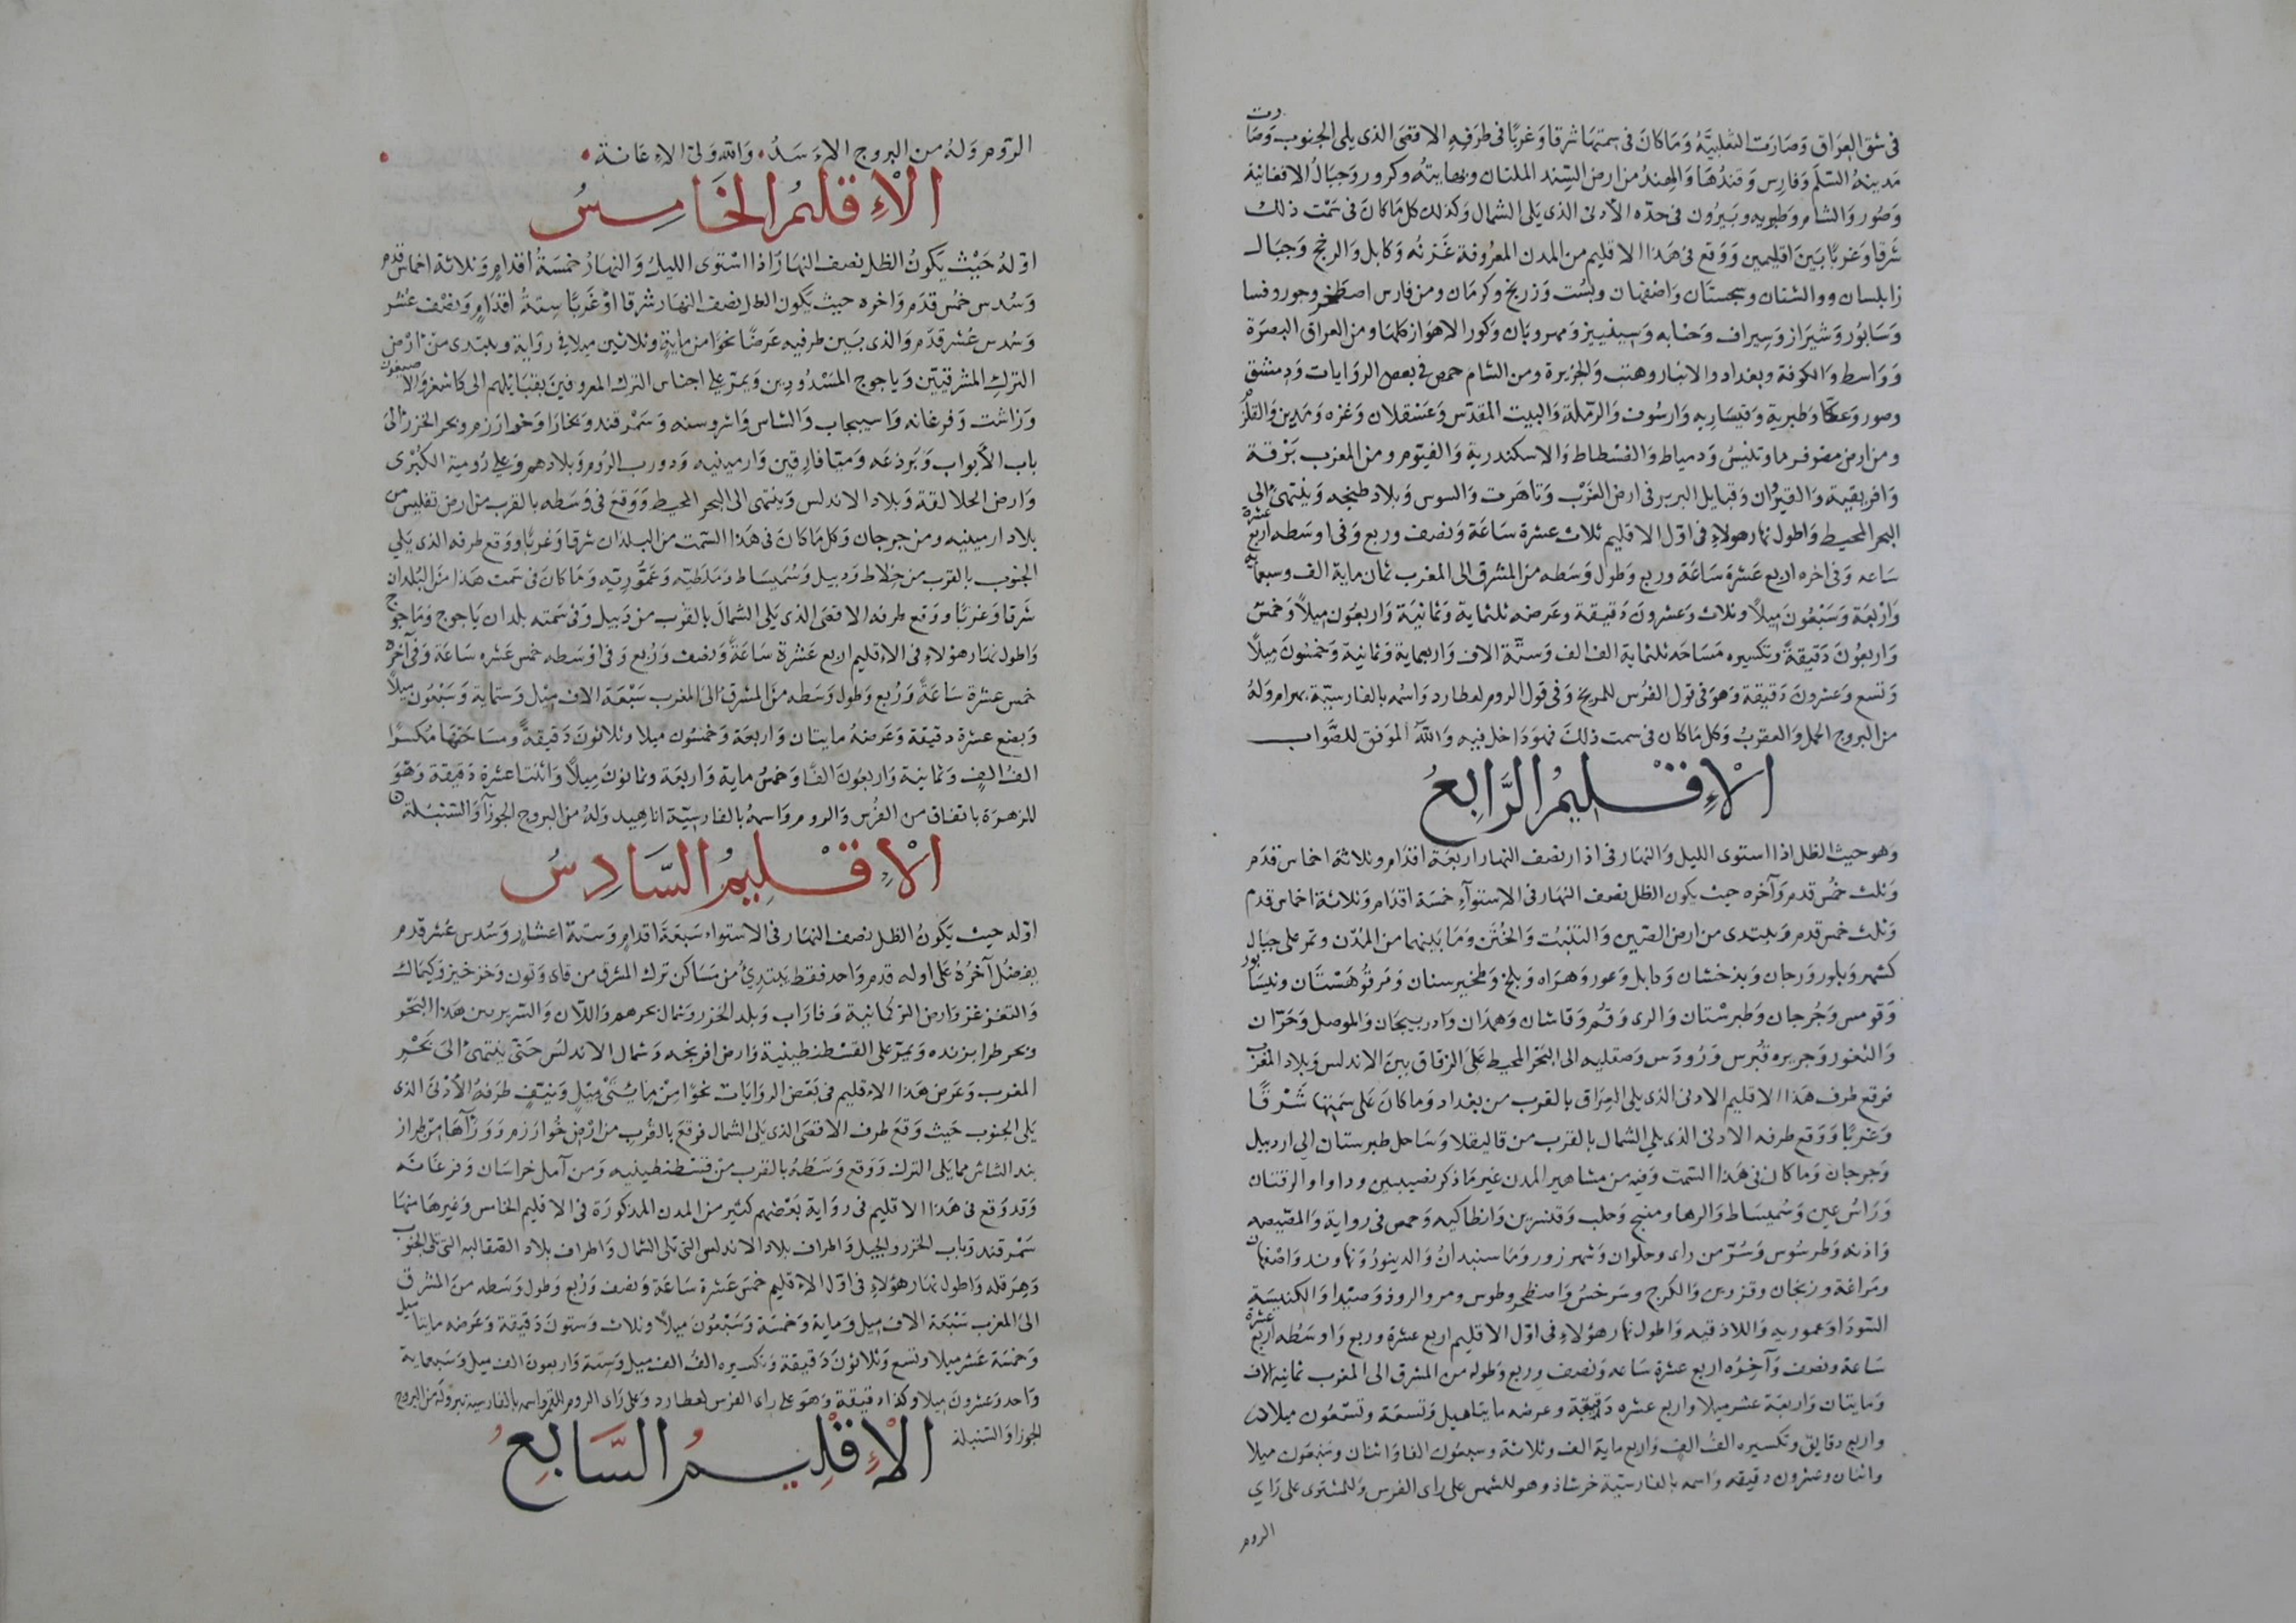 في شق العراق وصارت الثعلبية وما كان في سمتها شرقا وغربا في طرفه الاقصى الذي يلي الجنوب وصارت
مدينة السلم وفارس وقندهار والهند من ارض السند الملتان وكرور وجبال الافغانية
وصور والشام وطبريه وبيروت في حده الادنى الذي يلي الشمال وكذلك كل ما كان في سمت ذلك
شرقا وغربا بين اقليمين ووقع في هذا الاقليم من المدن المعروفة غزنه وكابل والرخج وجبال
زابلستان ووالشتان وسجستان واصفهان وبست وزرنج وكرمان ومن فارس اصطخر وجور وفسا
وسابور وشيراز وسيراف وجنابه وسينيز ومهروبان وكور الاهواز كلها ومن العراق البصرة
وواسط والكوفة وبغداد والانبار وهيت والجزيرة ومن الشام حمص في بعض الروايات ودمشق
وصور وعكا وطبرية وقيساريه وارسوف والرملة والبيت المقدس وعسقلان وغزه ومدين والقلزم
ومن ارض مصر فرما وتنيس ودمياط والفسطاط والاسكندرية والفيوم ومن المغرب برقة
وافريقية والقيروان وقبايل البربر في ارض الغرب وتاهرت والسوس وبلاد طنجه وينتهي الى
البحر المحيط واطول نهار هولاء في اول الاقليم ثلاث عشرة ساعة ونصف وربع وفي اوسطه اربع عشرة
ساعه وفي اخره اربع عشرة ساعة وربع وطول وسطه من المشرق الى المغرب ثمان ماية الف وسبعماية
واربعة وسبعون ميلا وثلاث وعشرون دقيقة وعرضه ثلثماية وثمانية واربعون ميلا وخمس
واربعون دقيقة وتكسيره مساحه ثلثماية الف الف وستة الاف واربعماية وثمانية وخمسون ميلا
وتسع وعشرون دقيقة وهو في قول الفرس للمريخ وفي قول الروم لعطارد واسمه بالفارسية بهرام وله
من البروج الحمل والعقرب وكل ما كان في سمت ذلك فهو داخل فيه والله الموفق للصواب
الإقليم الرابع
وهو حيث الظل اذا استوى الليل والنهار في اذار نصف النهار اربعة اقدام وثلاثة اخماس قدم
وثلث خمس قدم وآخره حيث يكون الظل نصف النهار في الاستوآء خمسة اقدام وثلاثة اخماس قدم
وثلث خمس قدم ويبتدى من ارض الصين والتبت والختن وما بينهما من المدن وتمر على جبال
كشمير وبلور ورجان وبدخشان وكابل وغور وهراه وبلخ وطخيرستان ومرو وقوهستان ونيسابور
وقومس وجرجان وطبرستان والرى وقم وقاشان وهمدان وادربيجان والموصل وحران
والثغور وجزيره قبرس ورودس وصقليه الى البحر المحيط على الزقاق بين الاندلس وبلاد المغرب
فوقع طرف هذا الاقليم الادنى الذي يلي العراق بالقرب من بغداد وما كان على سمتها شرقا
وغربا ووقع طرفه الادنى الذي يلي الشمال بالقرب من قاليقلا وساحل طبرستان الى اردبيل
وجرجان وما كان في هذا السمت وفيه من مشاهير المدن غير ما ذكر نصيبين وداراو الرقتان
وراس عين وسميساط والرها ومنبج وحلب وقنسرين وانطاكيه وحمص في رواية والمصيصه
واذنه وطرسوس وسر من راى وحلوان وشهرزور وماسبندان والدينور ونهاوند واصفهان
ومراغة وزنجان وقزوين والكرج وسرخس واصطخر وطوس ومرو الروذ وصيدا والكنيسة
السوداو عموريه واللاذقيه واطول نهار هؤلاء في اول الاقليم اربع عشرة وربع واوسطه اربع عشرة
ساعة ونصف وآخره اربع عشرة ساعه ونصف وربع وطوله من المشرق الى المغرب ثمانية الاف
ومايتان واربعة عشر ميلا واربع عشره دقيقة وعرضه مايتا ميل وتسعة وتسعون ميلا
واربع دقايق وتكسيره الف الف واربع ماية الف وثلاثة وسبعون الفا واثنان وسبعون ميلا
واثنان وعشرون دقيقه واسمه بالفارسية خرشاذ وهو للشمس على راى الفرس وللمشترى على راي
الروم
الروم وله من البروج الاسد والله ولى الاعانة
الإقليم الخامس
اوله حيث يكون الظل نصف النهار اذا استوى الليل والنهار خمسة اقدام وثلاثة اخماس قدم
وسدس خمس قدم واخره حيث يكون الظل نصف النهار شرقا او غربا ستة اقدام ونصف عشر
وسدس عشر قدم والذي بين طرفيه عرضا نحوا من ماية وثلاثين ميلا في رواية ويبتدى من ارض
الترك المشرقيين وياجوج المسدودين ويمر على اجناس الترك المعروفين بقبايلهم الى كاشغر والاصيغون
وراشت وفرغانه واسبيجاب والشاس واشروسنه وسمرقند وبخارا وخوارزم وبحر الخزر الى
باب الأبواب وبرذعه وميافارقين وارمينيه ودروب الروم وبلادهم وعلى رومية الكبرى
وارض الجلالقة وبلاد الاندلس وينتهى الى البحر المحيط ووقع في وسطه بالقرب من ارض تفليس من
بلاد ارمينيه ومن جرجان وكل ما كان في هذا السمت من البلدان شرقا وغربا ووقع طرفه الذي يلي
الجنوب بالقرب من خلاط ودبيل وسميساط وملطيه وعموريه وما كان في سمت هذا من البلدان
شرقا وغربا ووقع طرفه الاقصى الذي يلي الشمال بالقرب من دبيل وفي سمته بلدان ياجوج وماجوج
واطول نهار هؤلاء في الاقليم اربع عشرة ساعة ونصف وربع وفي اوسطه خمس عشره ساعة وفي آخره
خمس عشرة ساعة وربع وطول وسطه من المشرق الى المغرب سبعة الاف ميل وستماية وسبعون ميلا
وبضع عشرة دقيقة وعرضه مايتان واربعة وخمسون ميلا وثلاثون دقيقة ومساحتها مكسرا
الف الف وثمانية واربعون الفا وخمس ماية واربعة وثمانون ميلا واثنتا عشرة دقيقة وهو
للزهرة باتفاق من الفرس والروم واسمه بالفارسية اناهيد وله من البروج الجوزآ والسنبلة
الإقليم السادس
اوله حيث يكون الظل نصف النهار في الاستواء سبعة اقدام وستة اعشار وسدس عشر قدم
يفضل آخره على اوله قدم واحد فقط يبتدئ من مساكن ترك المشرق من قاى وتون وخرخيز وكيماك
والتغزغز وارض التركمانية وفاراب وبلد الخزر وشمال بحرهم واللان والسرير بين هذا البحر
وبحر طرابزنده ويمر على القسطنطينية وارض افرنجه وشمال الاندلس حتى ينتهى الى بحر
المغرب وعرض هذا الاقليم في بعض الروايات نحوا من مايتى ميل ونيف طرفه الأدنى الذى
يلى الجنوب حيث وقع طرف الاقصى الذي يلى الشمال فوقع بالقرب من ارض خوارزم وورآها من طراز
بند الشاش مما يلى الترك ووقع وسطه بالقرب من قسطنطينيه ومن آمل خراسان وفرغانه
وقد وقع في هذا الاقليم في رواية بعضهم كثير من المدن المذكورة في الاقليم الخامس وغيرها منها
سمرقند وباب الخزر والجيل واطراف بلاد الاندلس التى تلى الشمال واطراف بلاد الصقالبه التى تلى الجنوب
وهرقله واطول نهار هؤلاء في اول الاقليم خمس عشرة ساعة ونصف وربع وطول وسطه من المشرق
الى المغرب سبعة الاف ميل وماية وخمسة وسبعون ميلا وثلاث وستون دقيقة وعرضه مايتا ميل
وخمسة عشر ميلا وتسع وثلاثون دقيقة وتكسيره الف الف ميل وستة واربعون الف ميل وسبعماية
واحد وعشرون ميلا وكذا دقيقة وهو على راى الفرس لعطارد وعلى راى الروم للقمر واسمه بالفارسية تير وله من البروج
الجوزا والسنبلة
الإقليم السابع